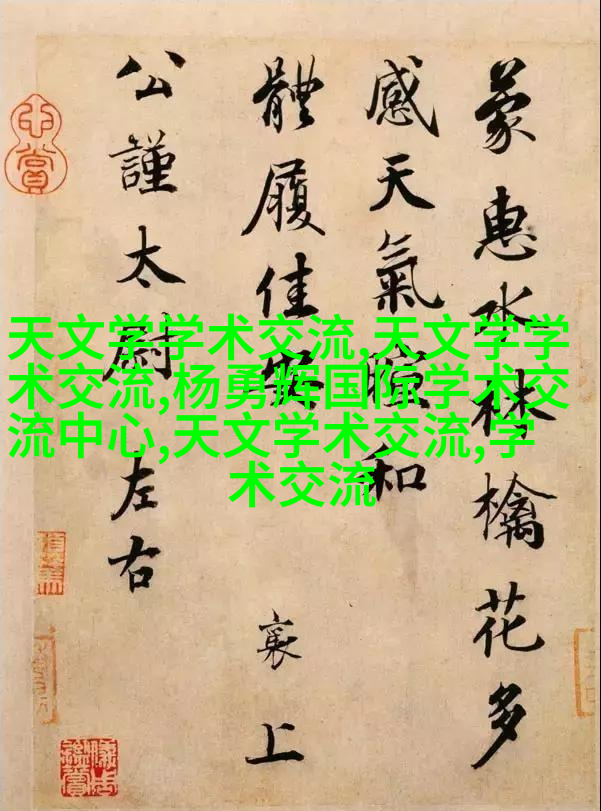 蒙惠水林檎花多
感天氣暄和
體履佳安 襄上
公謹太尉左右
天文学学术交流,天文学学
术交流,杨勇辉国际学术交
流中心,天文学术交流,学
术交流
心賞